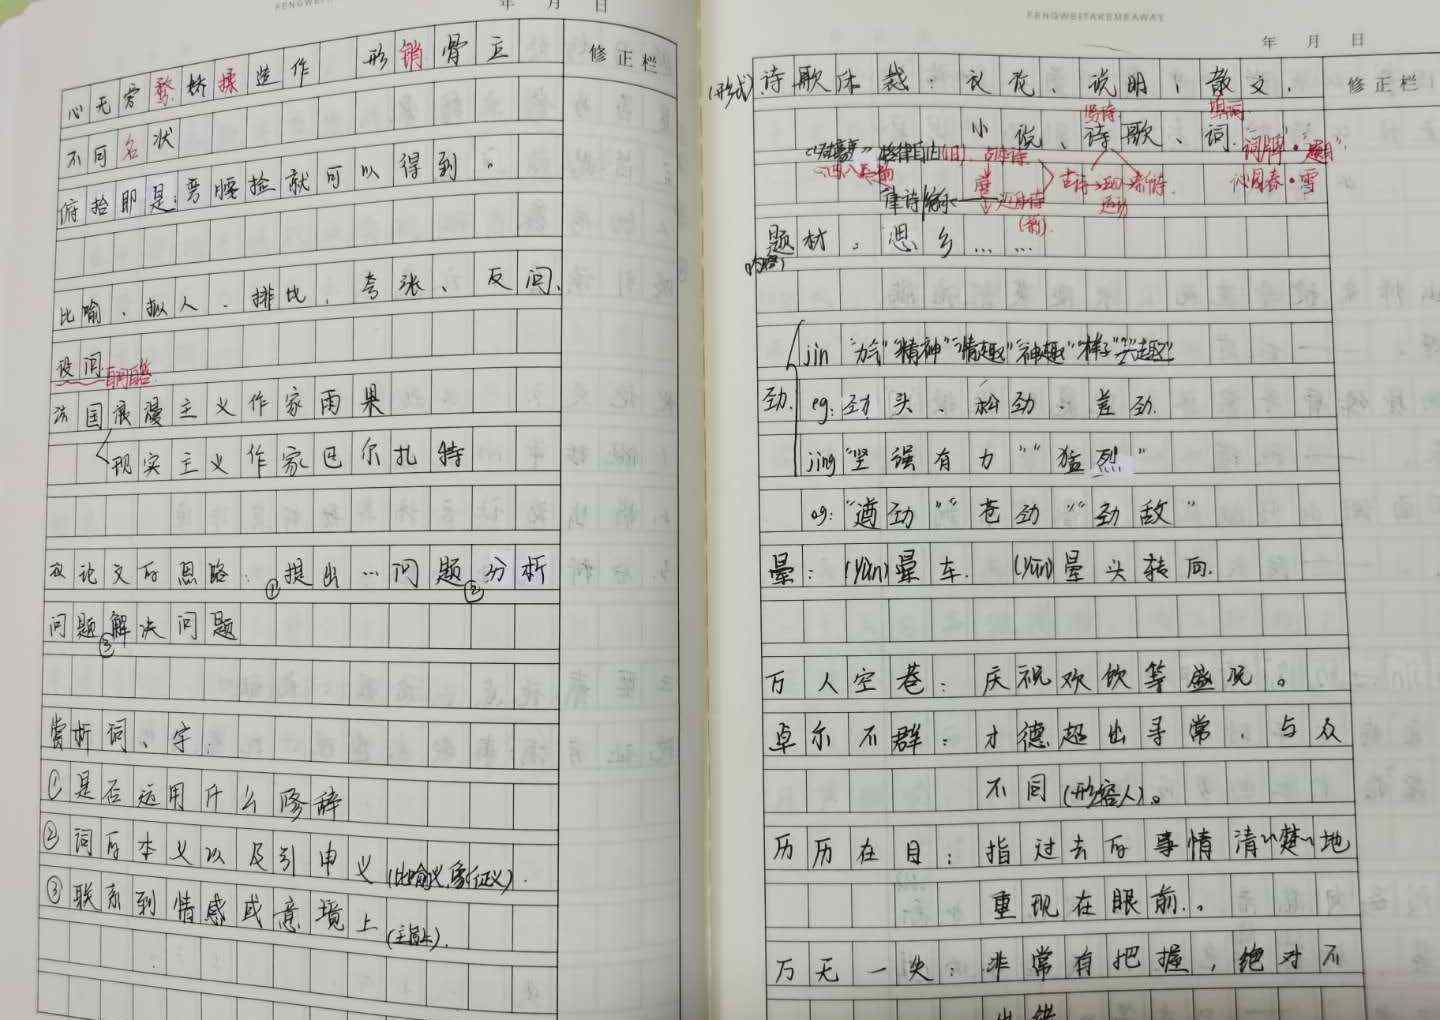 FENGWEITAKEMEAWAY
年 月 日
修正栏
心无旁骛 矫揉造作 形销骨立
不可名状
俯拾即是:弯腰捡就可以得到。
比喻、拟人、排比、夸张、反问、
设问 自问自答
法国浪漫主义作家雨果
现实主义作家巴尔扎特
议论文的思路:①提出…问题②分析
问题③解决问题
赏析词、字:
①是否运用什么修辞
②词的本义以及引申义(比喻义,象征义).
③联系到情感或意境上(主旨上).
FENGWEITAKEMEAWAY
年 月 日
修正栏
(形式)诗歌体裁:议论、说明、散文.
写诗. 填词
小说、诗歌、词. "词牌"·"题目"
格律自由(旧).古体诗 古诗→运动→新诗. 沁园春·雪
律诗 近体诗
(新).
题材:思乡……
(内容)
jin "力气""精神""情趣""神趣""样子""兴趣"
劲. eg:劲头、松劲、差劲.
jing"坚强有力""猛烈"
eg:"遒劲""苍劲""劲敌"
晕:(yùn)晕车. (yūn)晕头转向.
万人空巷:庆祝欢饮等盛况。
卓尔不群:才德超出寻常,与众
不同(形容人)。
历历在目:指过去的事情清清楚楚地
重现在眼前.。
万无一失:非常有把握,绝对不
出错